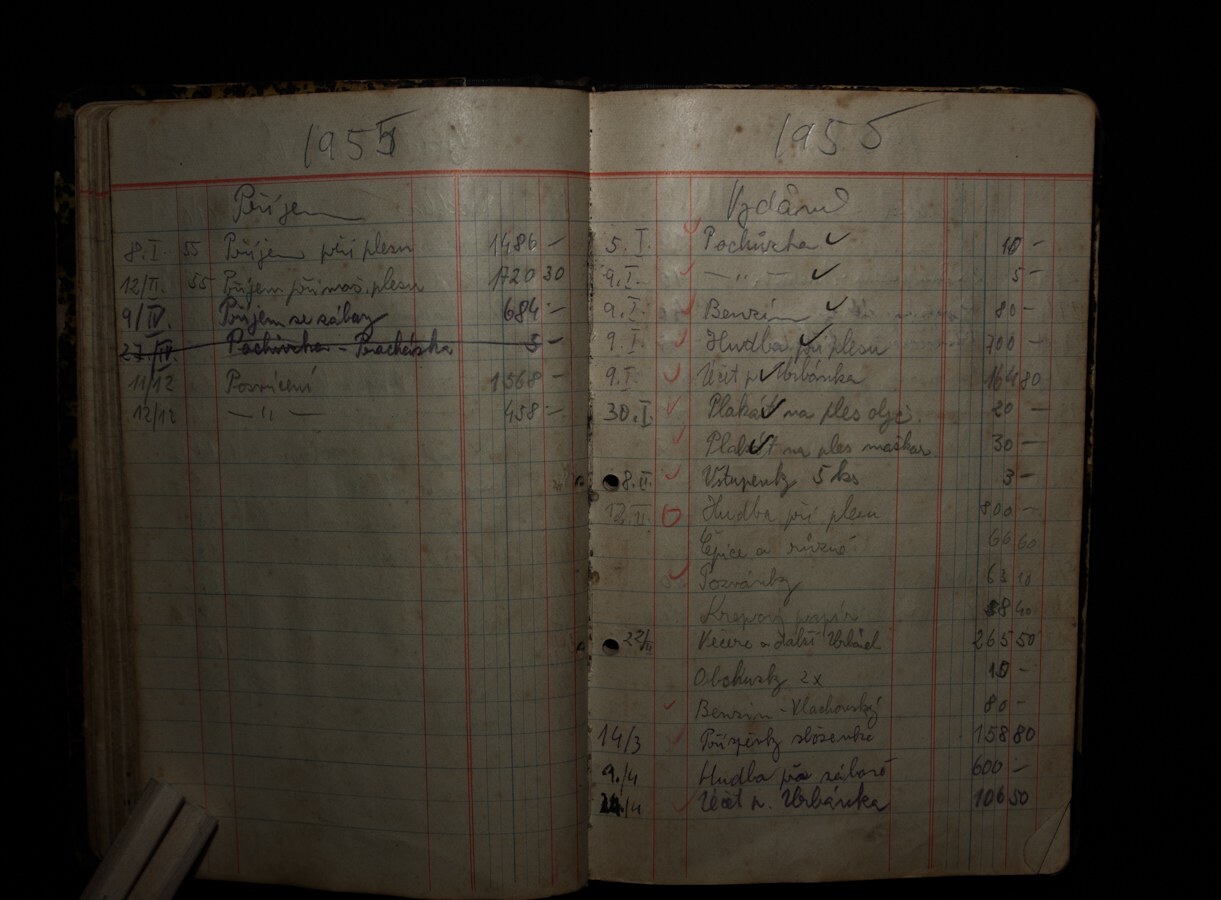 1955
Příjem
8.I. 55 Příjem při plesu 1486 –
12/II. 55 Příjem při maš. plesu 1720 30
9/IV. Příjem ze zábavy 684 –
27/IV. Pochůzka - Procházka 5 –
11/12 Posvícení 1568 –
12/12 – " – 458 –
1955
Vydání
5. I. Pochůzka ✓ 10 –
9. I. – " – ✓ 5 –
9. I. Benzín ✓ 80 –
9. I. Hudba při plesu 700 –
9. I. Účet p. Urbánka 164 80
30. I. Plakát na ples obyč. 20 –
Plakát na ples maškar. 30 –
8. II. Vstupenky 5 ks 3 –
12. II. Hudba při plesu 800 –
Čepice a různé 66 60
Pozvánky 63
Krepový papír 40
22/II Večeře a další 265 50
Obchůzky 2x 10 –
Benzin - Vlachovský 80 –
14/3 Příspěvky složenka 158 80
9./4 Hudba při zábavě 600 –
/4 Účet p. Urbánka 106 50